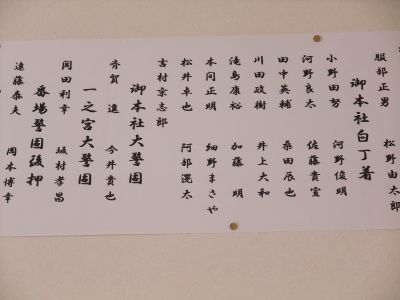 服部正男 松野由太郎
御本社白丁着
小野田努 河野俊明
河野良太 佐藤貴宣
田中英輔 桑田辰也
川田政樹 井上大和
滝島康裕 加藤 明
本間正明 細野まさや
松井卓也 阿部滉太
吉村京志郎
御本社大警固
斉賀 進 今井貴也
一之宮大警固
関田利幸 坂村孝昌
番場警固後押
遠藤泰夫 岡本博幸